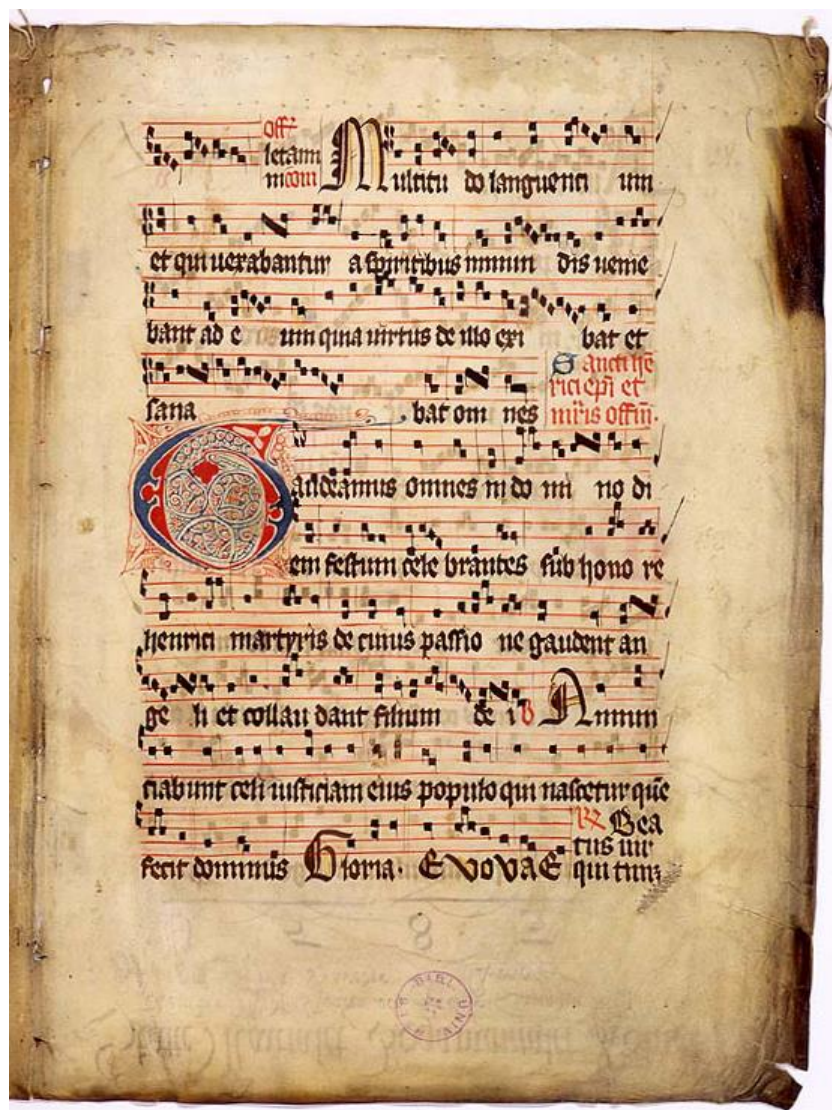 off
letam
mcom Multitu do languenti um
et qui uexabantur a spiritibus inmun dis uenie
bant ad e um quia uirtus de illo exi bat et
Sancti he
rici epi et
sana bat om nes mris offm.
Gaudeamus omnes in do mi no di
em festum cele brantes sub hono re
henrici martyris de cuius passio ne gaudent an
ge li et collau dant filium de i Annun
ciabunt celi iusticiam eius populo qui nascetur que
Bea
tus uir
fecit dominus Gloria. EVOVAE qui tim